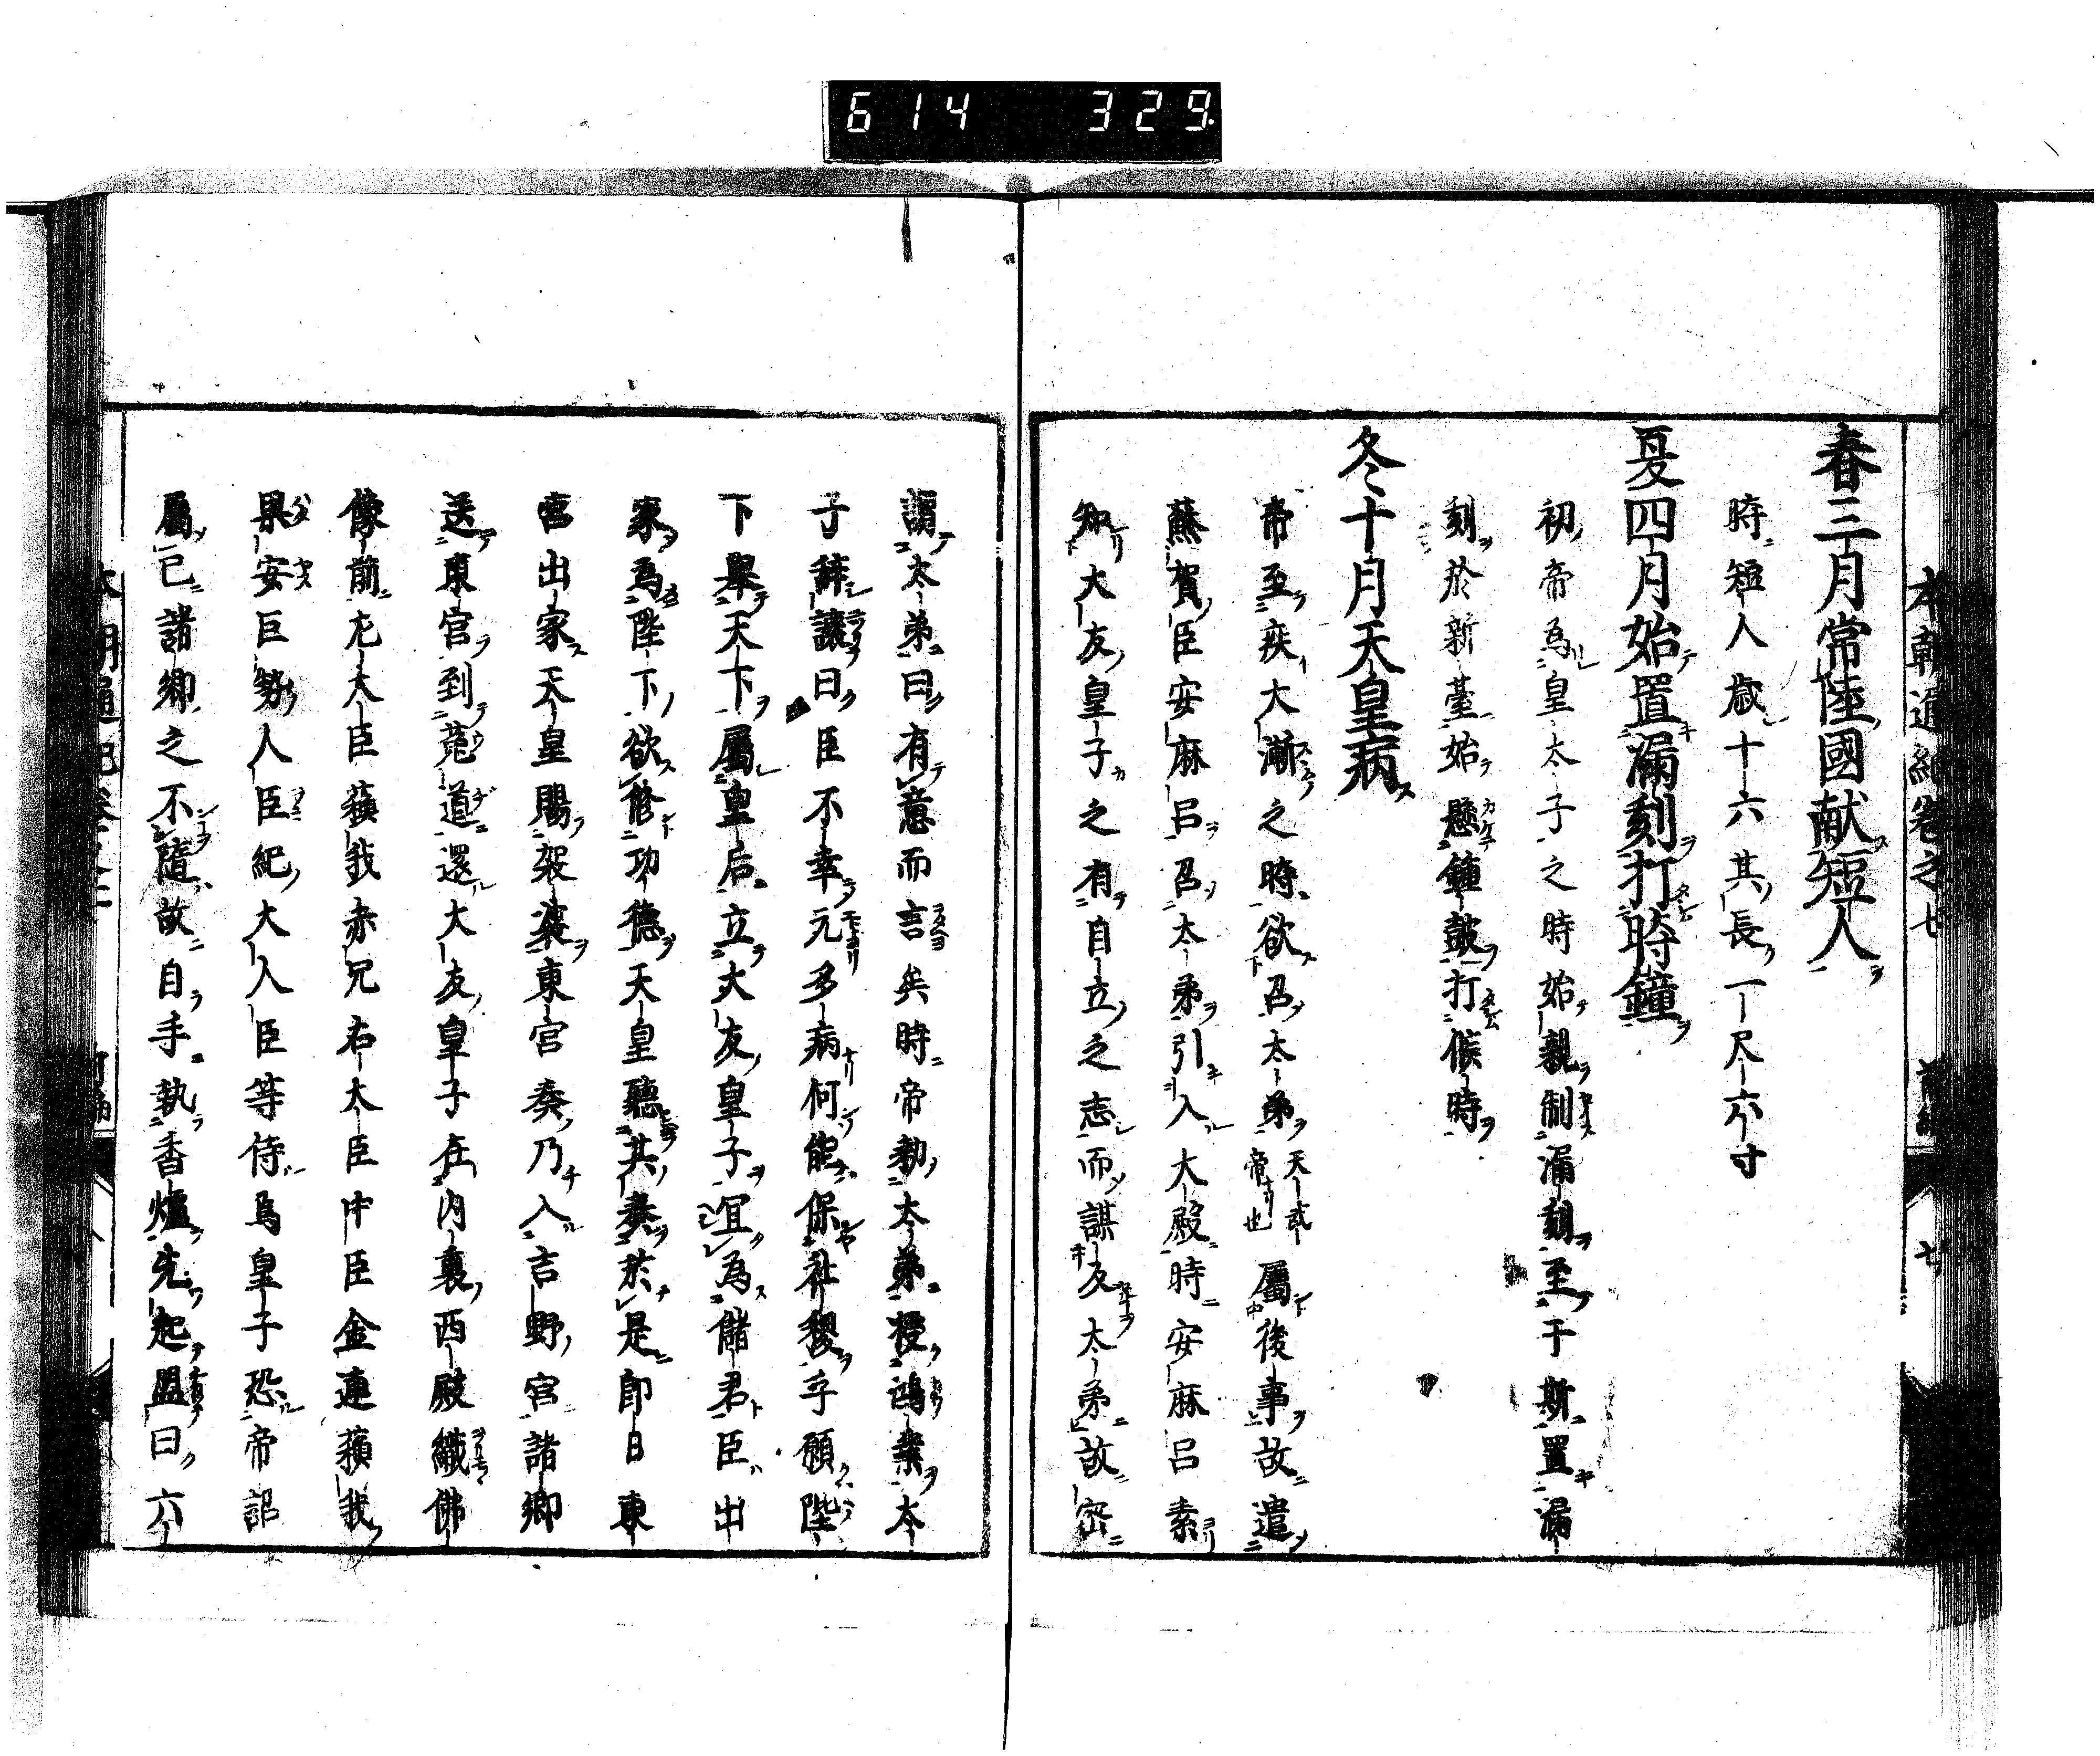 614 329
本朝通紀卷之七 前編 七
春三月常陸國献短人
時短人歳十六其長一尺六寸
夏四月始置漏刻打時鐘
初帝為皇太子之時始親制漏刻至于斯置漏
刻於新臺始懸鐘皷打候時
冬十月天皇病
帝至疾大漸之時欲召太弟天武帝也屬後事故遣
蘇賀臣安麻呂召太弟引入大殿時安麻呂素
知大友皇子之有自立之志而謀及太弟故密
謂太弟曰有意而言矣時帝勅太弟授鴻業太
子辞讓曰臣不幸元多病何能保社稷乎願陛
下舉天下屬皇后立大友皇子冝為儲君臣出
家為陛下欲修功德天皇聽其奏於是即日東
宮出家天皇賜袈裟東宮奏乃入吉野宮諸卿
送東宮到菟道還大友皇子在内裏西殿織佛
像前左大臣蘓我赤兄右大臣中臣金連蘓我
果安巨勢人臣紀大人臣等侍焉皇子恐帝詔
屬己諸卿之不隨故自手執香爐先起盟曰六